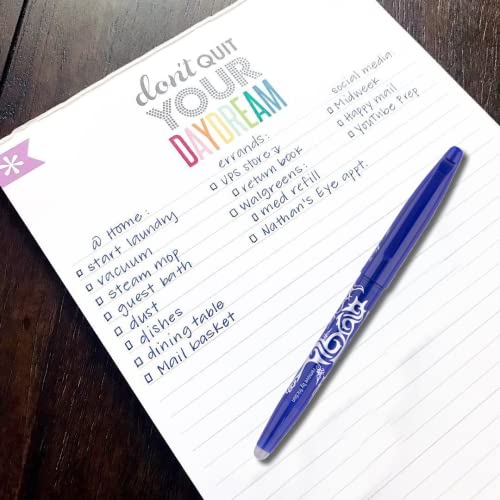 don't QUIT
YOUR
DAYDREAM
@ Home:
start laundry
vacuum
steam mop
guest bath
dust
dishes
dining table
Mail basket
errands:
UPS store
return book
Walgreens:
med refill
Nathan's Eye appt.
social media:
Midweek
Happy mail
YouTube Prep